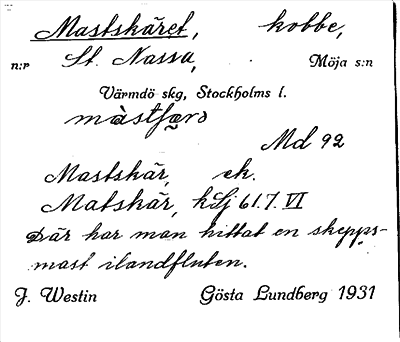 Mastskäret, kobbe,
n:r St. Nassa, Möja s:n
Värmdö skg, Stockholms l.
Md 92
Mastskär, ek.
Matskär, hLj 61.7. VI
Där har man hittat en skepps-
mast ilandfluten.
J. Westin Gösta Lundberg 1931